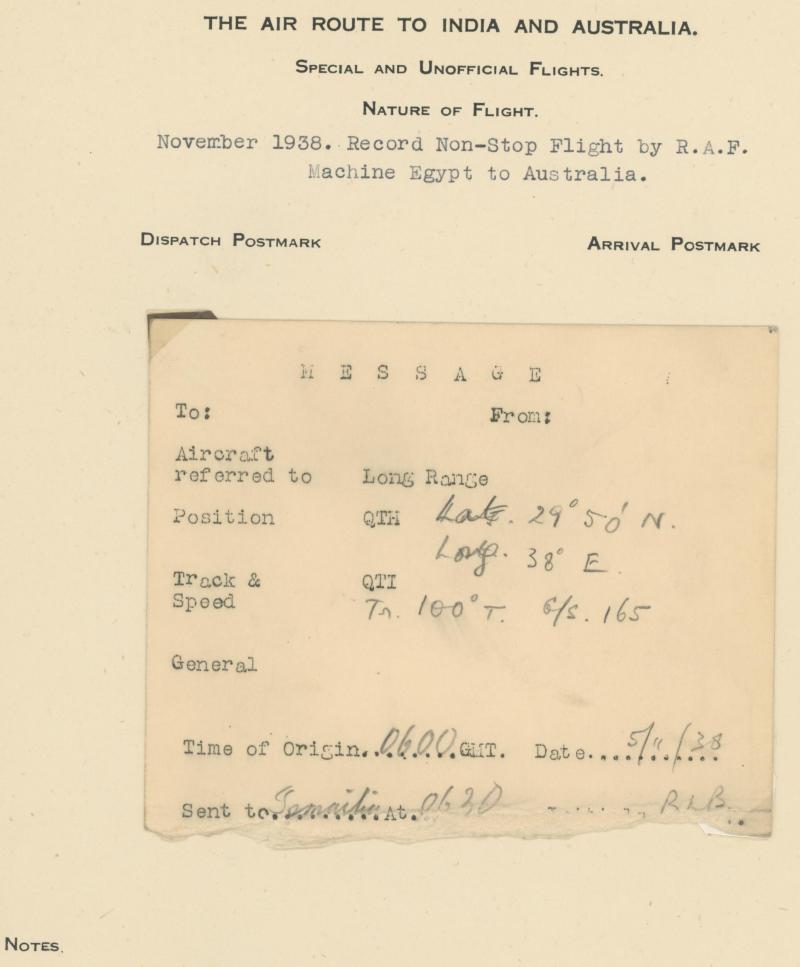 THE AIR ROUTE TO INDIA AND AUSTRALIA.
SPECIAL AND UNOFFICIAL FLIGHTS.
NATURE OF FLIGHT.
November 1938. Record Non-Stop Flight by R.A.F.
Machine Egypt to Australia.
DISPATCH POSTMARK ARRIVAL POSTMARK
M E S S A G E
To: From:
Aircraft
referred to Long Range
Position QTH Lat. 29° 50' N.
Long. 38° E.
Track & QTI
Speed Tr. 100° T. G/S. 165
General
Time of Origin..0600.GMT. Date....5/11/38
Sent to. Ismailia At. 0620 RLB
NOTES.